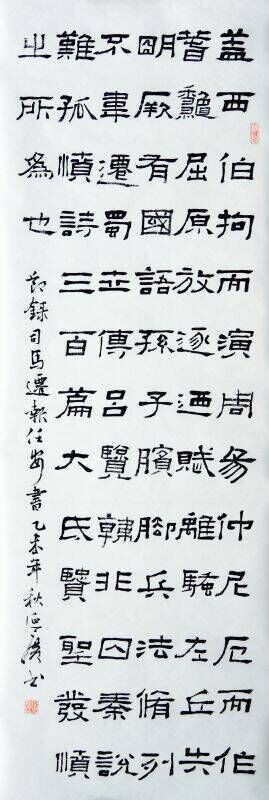 盖西伯拘而演周易仲尼厄而作
萅龝屈原放逐迺賦離騷左丘失
朙厥有國語孫子臏腳兵法脩列
不韋遷蜀世傳呂覽韓非囚秦說
難孤憤詩三百篇大氐賢聖發憤
之所爲也
節錄司馬遷報任安書乙未年秋书